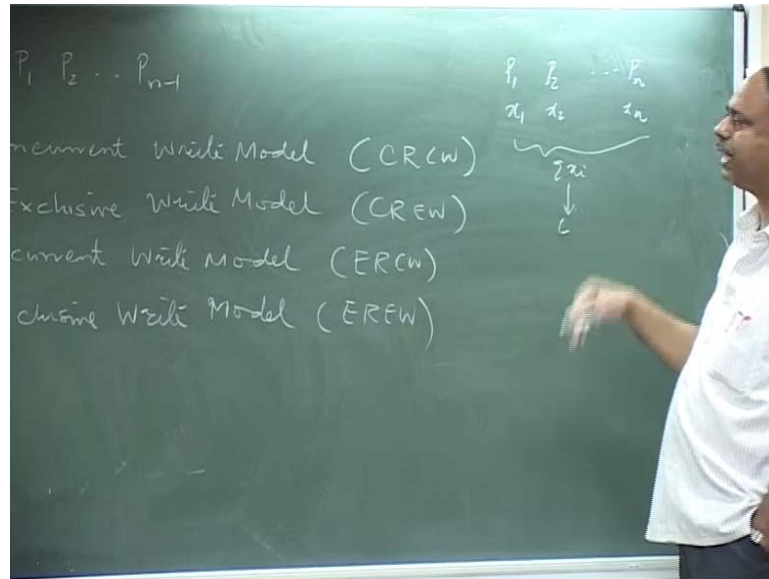 P₁ P₂ .. Pₙ₋₁
ncurrent Write Model (CRCW)
Exclusive Write Model (CREW)
current Write Model (ERCW)
clusive Write Model (EREW)
P₁ P₂ ... Pₙ
x₁ x₂ xₙ